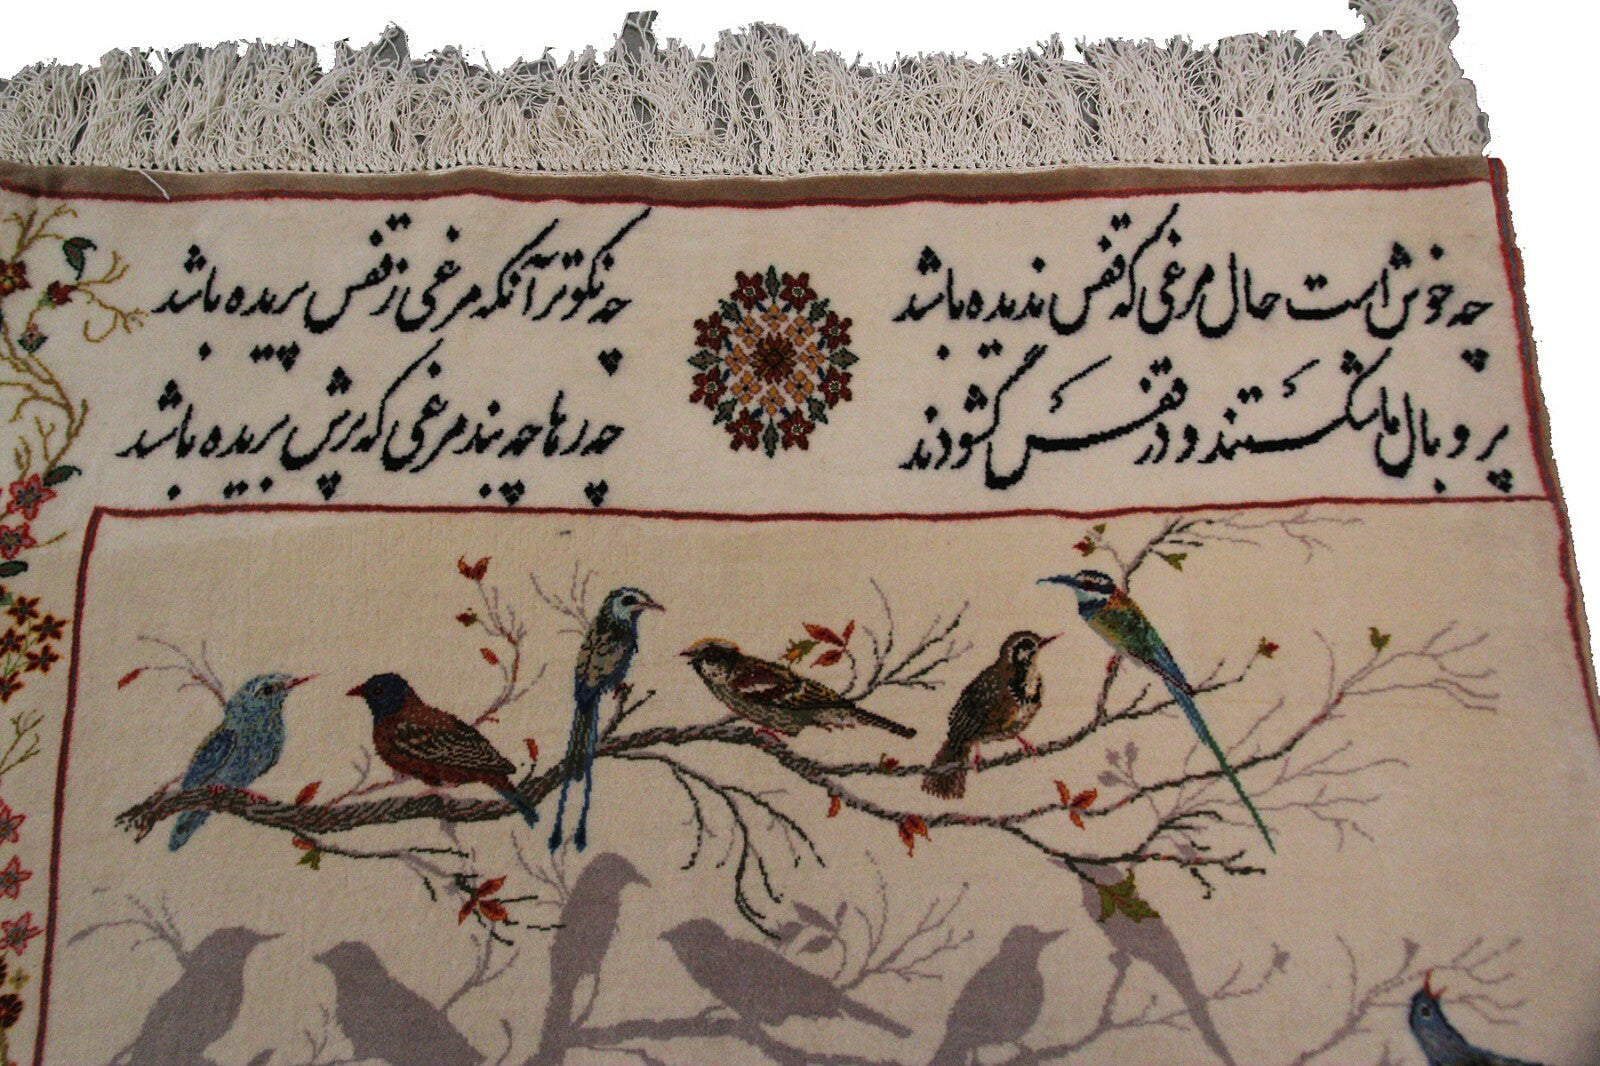 چه خوش است حال مرغی که قفس ندیده باشد
چه نکوتر آنکه مرغی ز قفس پریده باشد
پر و بال ما شکستند و در قفس گشودند
چه رها چه بند مرغی که پرش بریده باشد